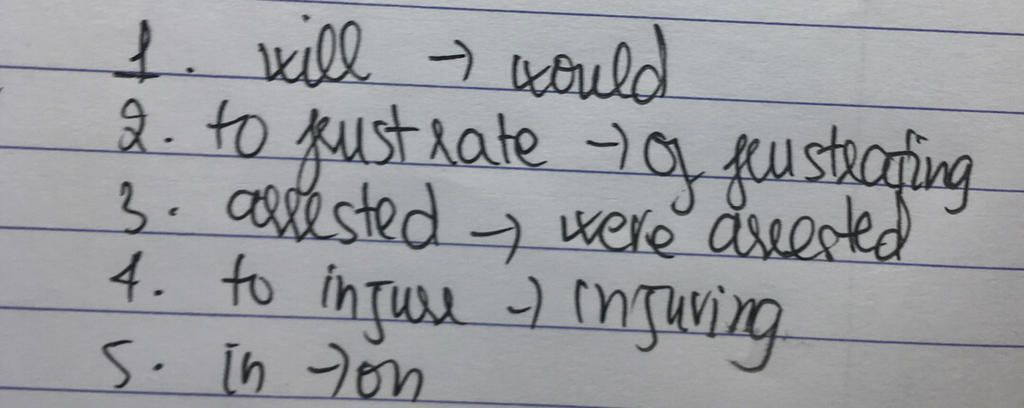 1. will → would
2. to frustrate → of frustrating
3. arrested → were arrested
4. to injure → injuring
5. in → on